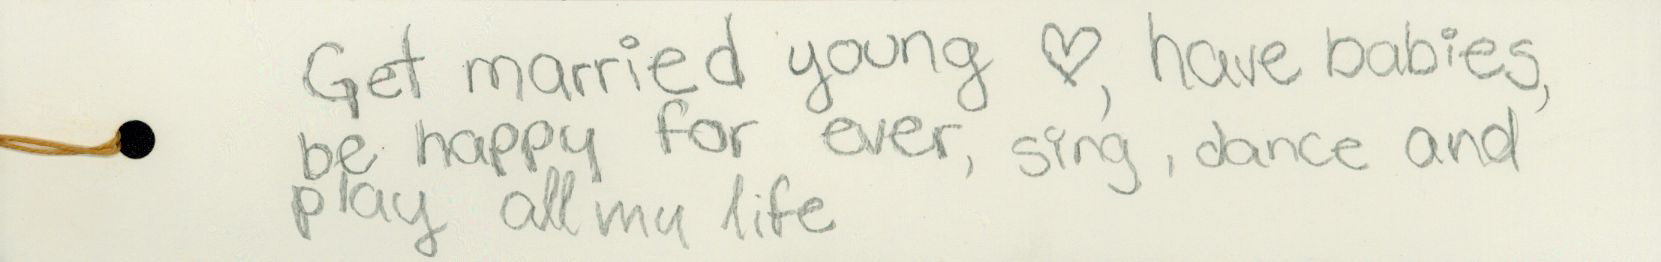 Get married young ♡, have babies,
be happy for ever, sing, dance and
play all my life